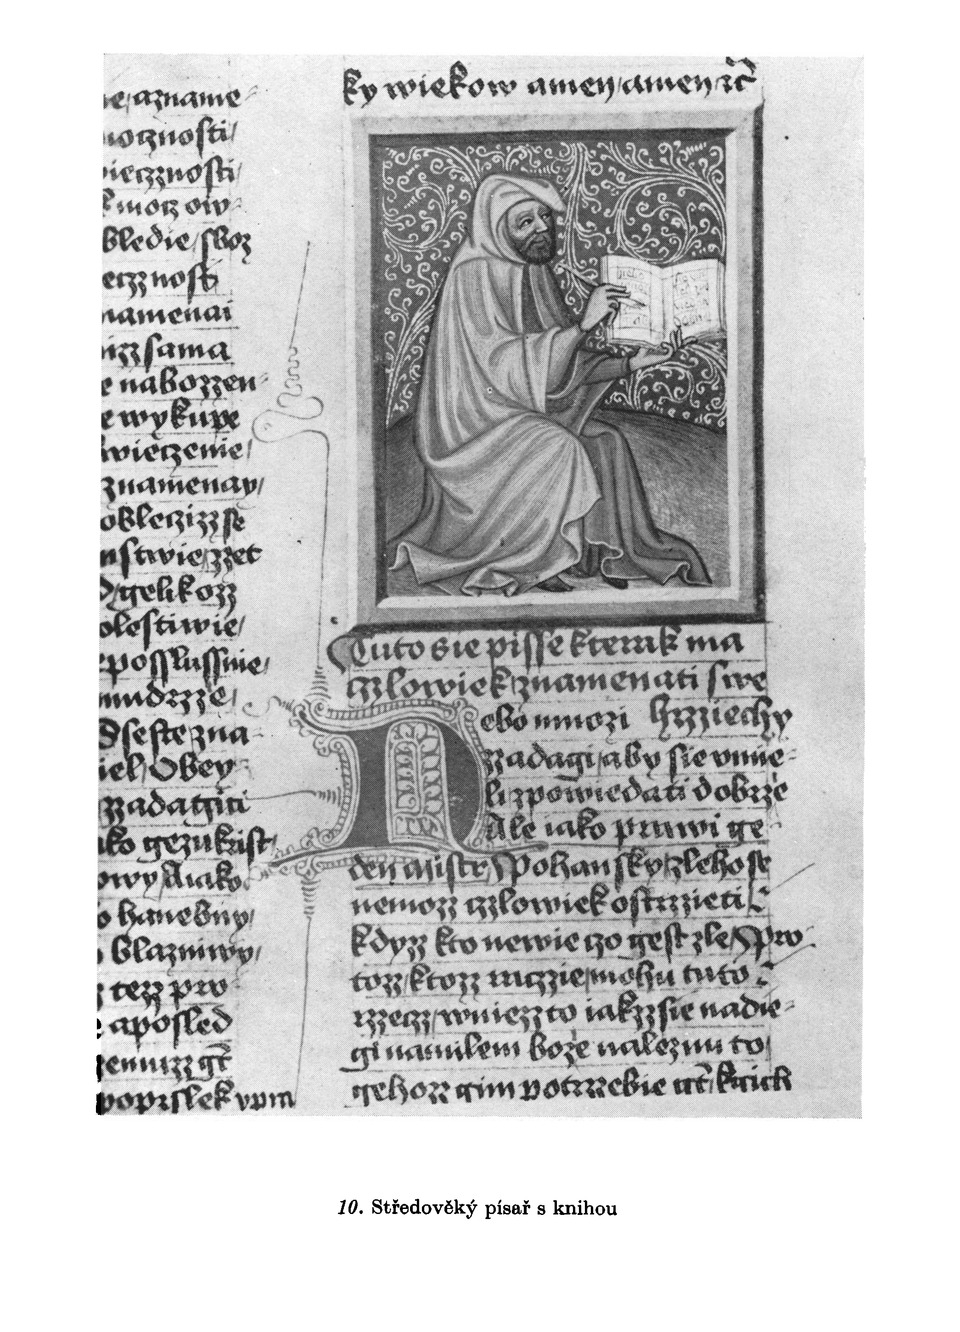 ie azname-
mocznosti/
wiecznosti/
kmocz ow-
bledie/sboz
ecznost
namenai
izz sama
e nabozzen-
e wykupe
wieczenie/
znamenay/
oblecziz se
nstwie/zzet
gelikozz
olestiwie/
posslussnie/
mudrzze/
seste zna-
iel/Obey-
zzadagiti
ako gezukrist/
owy/A iako
o hanebny/
blazniwy/
tezz pro-
aposled
popislek vpm
ky wiekow amen/amen/zc
Tuto sie pisse kterak ma
czlowiek znamenati swe
Nebo mnozi hrziechy
zzadagi/aby sie vmie-
li zpowiedati dobrze
Ale iako prawi ge-
den mistr/Pohansky/zleho se
nemozz czlowiek ostrzieti
kdyzz kto newie czo gest zle/Pro-
tozz/ktozz ruczie/mohu tuto
rzzecz/wniezzto iakzz sie nadie-
gi namilem boze naleznu to/
gehozz gim potrzebie gt/kgich
10. Středověký písař s knihou